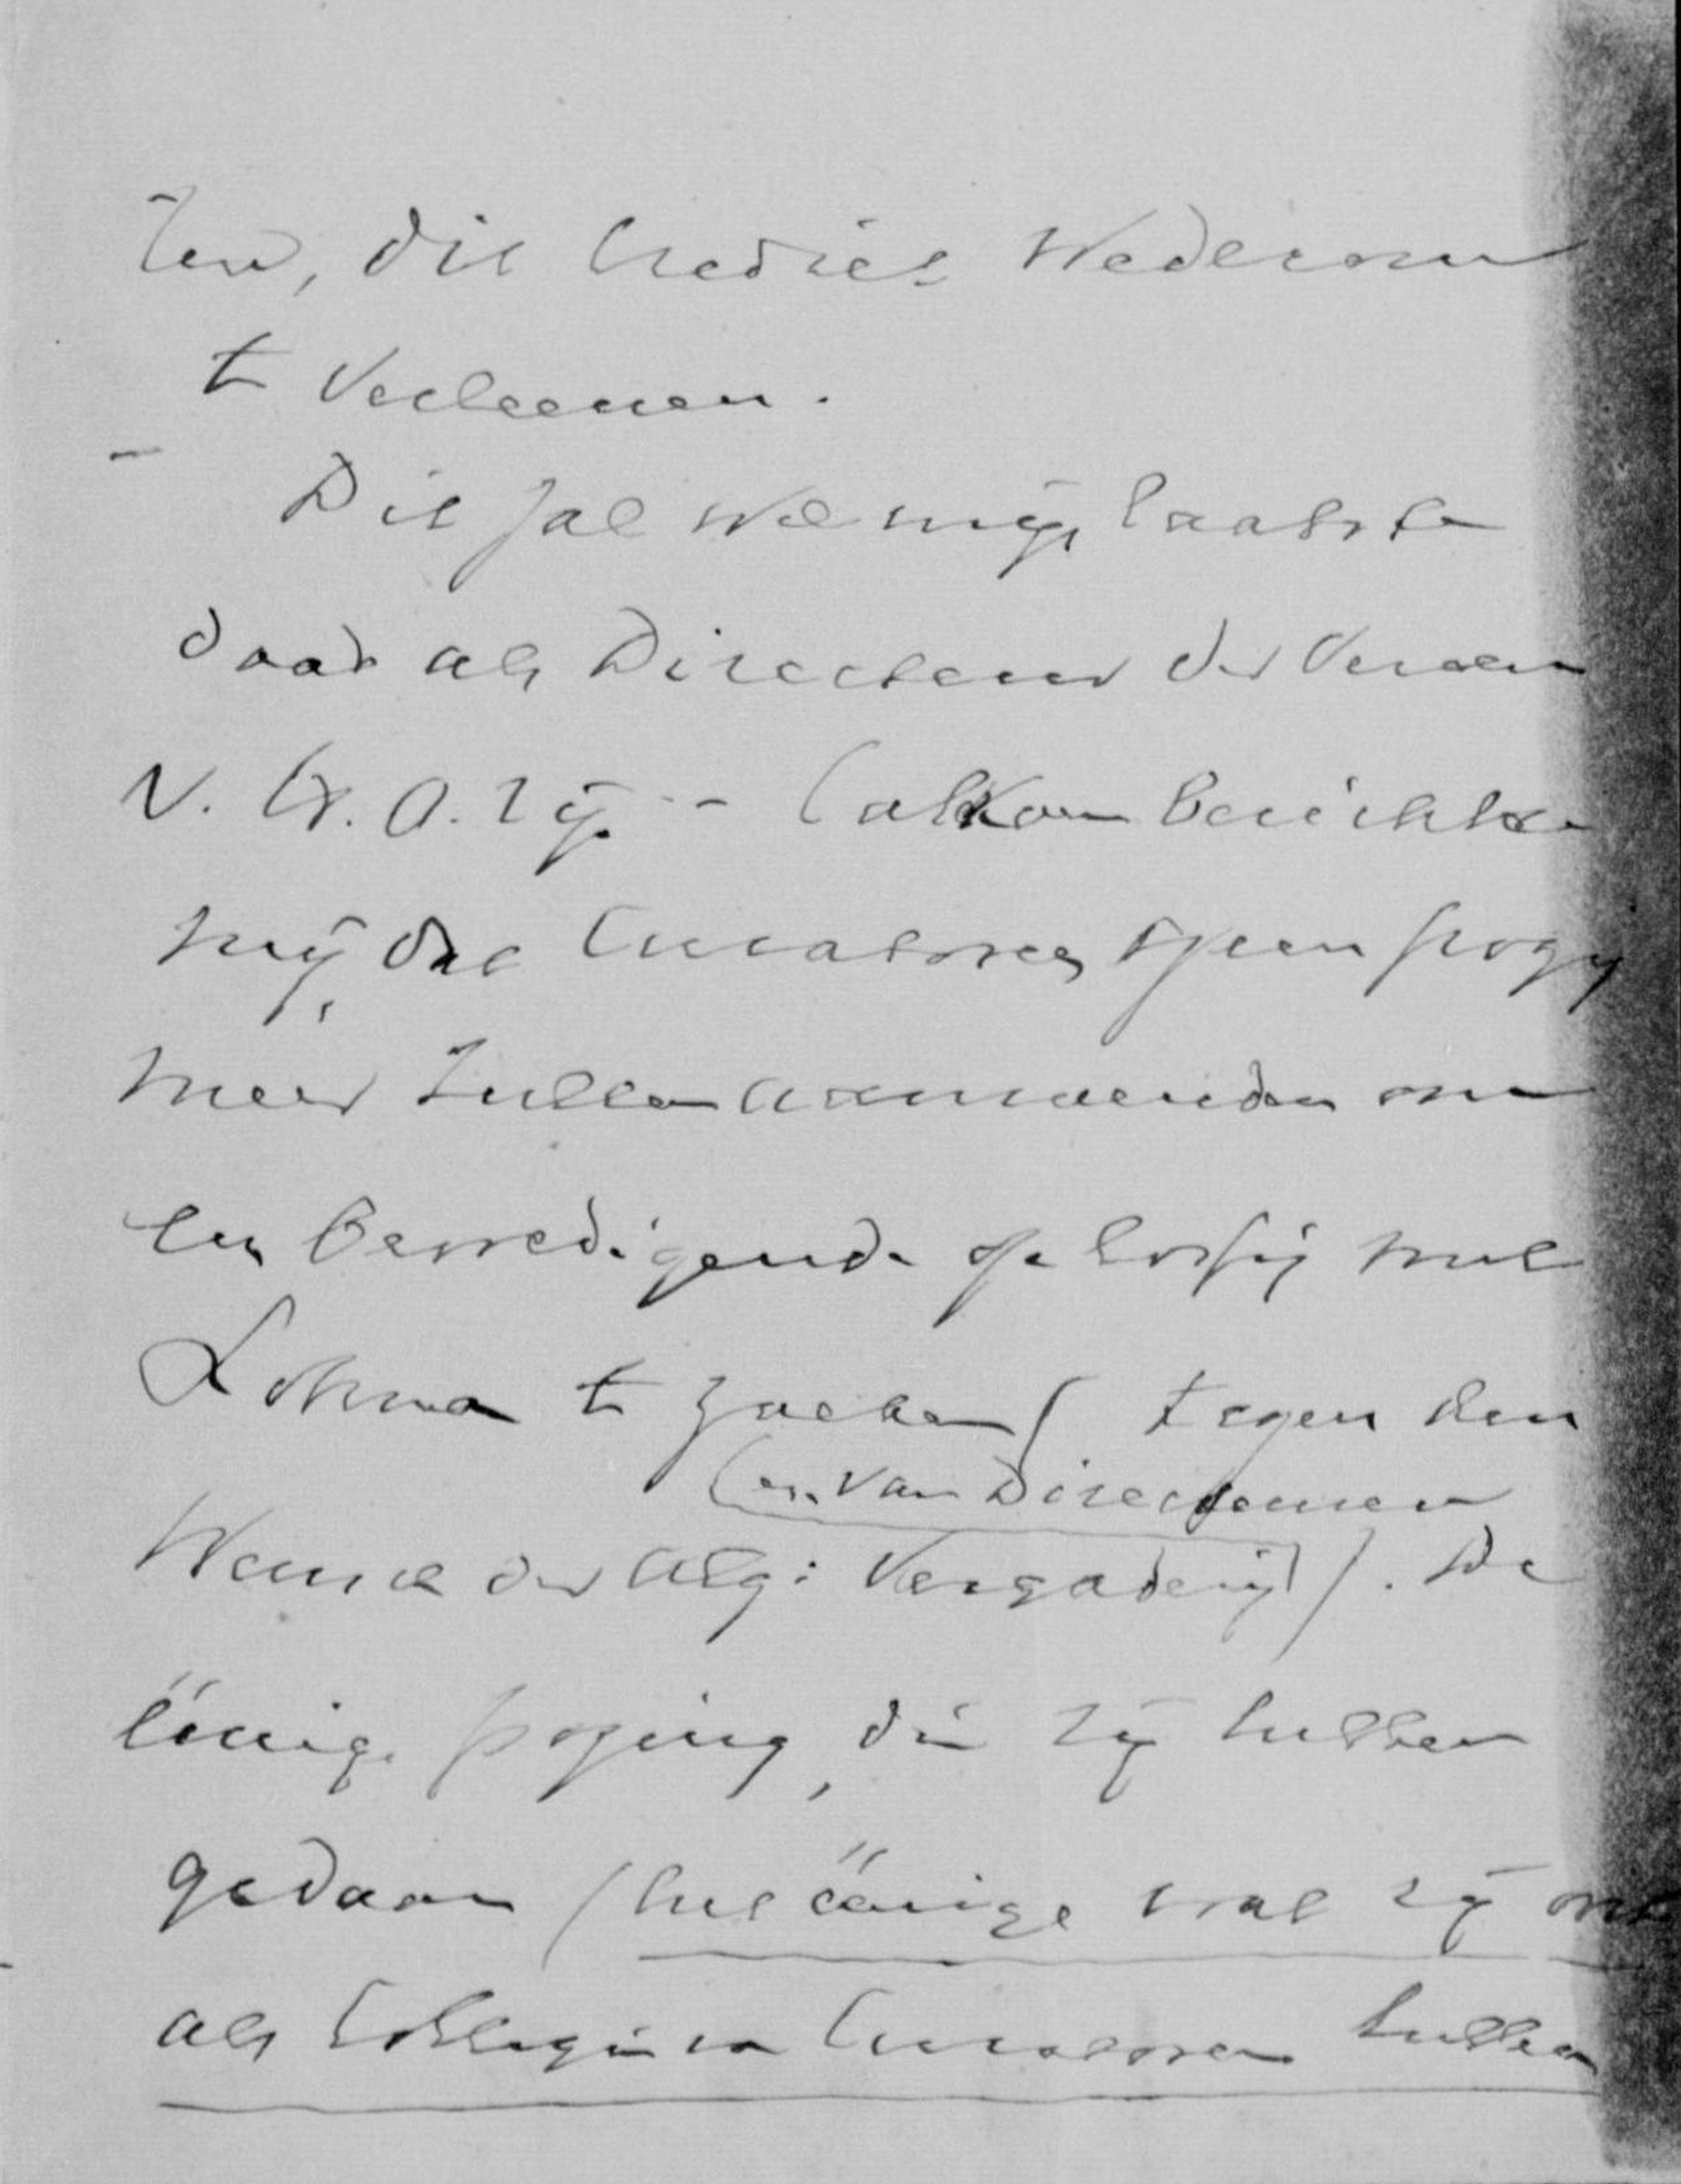 ten, dit crediet wederom
te verleenen.
Dit zal wel mijn laatste
daad als Directeur der Vereen
v. W.O. zijn - Calkoen berichtte
mij, dat Curatoren geen pogg
meer zullen aanwenden om
een bevredigende oplossing met
Lohman te zoeken (tegen den
(en van Directeuren
Wensch der Alg: Vergadering)). De
éénige poging, die zij hebben
gedaan (het éénige wat zij ons
als Collegie van Curatoren hebben